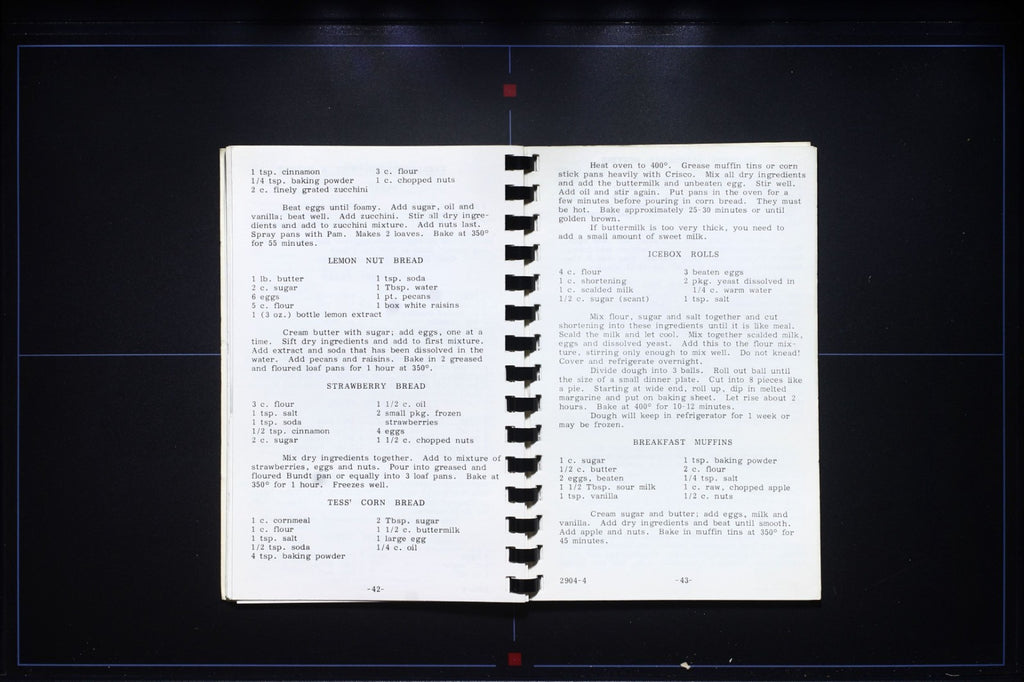 1 tsp. cinnamon 3 c. flour
1/4 tsp. baking powder 1 c. chopped nuts
2 c. finely grated zucchini
Beat eggs until foamy. Add sugar, oil and
vanilla; beat well. Add zucchini. Stir all dry ingre-
dients and add to zucchini mixture. Add nuts last.
Spray pans with Pam. Makes 2 loaves. Bake at 350°
for 55 minutes.
LEMON NUT BREAD
1 lb. butter 1 tsp. soda
2 c. sugar 1 Tbsp. water
6 eggs 1 pt. pecans
5 c. flour 1 box white raisins
1 (3 oz.) bottle lemon extract
Cream butter with sugar; add eggs, one at a
time. Sift dry ingredients and add to first mixture.
Add extract and soda that has been dissolved in the
water. Add pecans and raisins. Bake in 2 greased
and floured loaf pans for 1 hour at 350°.
STRAWBERRY BREAD
3 c. flour 1 1/2 c. oil
1 tsp. salt 2 small pkg. frozen
1 tsp. soda strawberries
1/2 tsp. cinnamon 4 eggs
2 c. sugar 1 1/2 c. chopped nuts
Mix dry ingredients together. Add to mixture of
strawberries, eggs and nuts. Pour into greased and
floured Bundt pan or equally into 3 loaf pans. Bake at
350° for 1 hour. Freezes well.
TESS' CORN BREAD
1 c. cornmeal 2 Tbsp. sugar
1 c. flour 1 1/2 c. buttermilk
1 tsp. salt 1 large egg
1/2 tsp. soda 1/4 c. oil
4 tsp. baking powder
-42-
Heat oven to 400°. Grease muffin tins or corn
stick pans heavily with Crisco. Mix all dry ingredients
and add the buttermilk and unbeaten egg. Stir well.
Add oil and stir again. Put pans in the oven for a
few minutes before pouring in corn bread. They must
be hot. Bake approximately 25-30 minutes or until
golden brown.
If buttermilk is too very thick, you need to
add a small amount of sweet milk.
ICEBOX ROLLS
4 c. flour 3 beaten eggs
1 c. shortening 2 pkg. yeast dissolved in
1 c. scalded milk 1/4 c. warm water
1/2 c. sugar (scant) 1 tsp. salt
Mix flour, sugar and salt together and cut
shortening into these ingredients until it is like meal.
Scald the milk and let cool. Mix together scalded milk,
eggs and dissolved yeast. Add this to the flour mix-
ture, stirring only enough to mix well. Do not knead!
Cover and refrigerate overnight.
Divide dough into 3 balls. Roll out ball until
the size of a small dinner plate. Cut into 8 pieces like
a pie. Starting at wide end, roll up, dip in melted
margarine and put on baking sheet. Let rise about 2
hours. Bake at 400° for 10-12 minutes.
Dough will keep in refrigerator for 1 week or
may be frozen.
BREAKFAST MUFFINS
1 c. sugar 1 tsp. baking powder
1/2 c. butter 2 c. flour
2 eggs, beaten 1/4 tsp. salt
1 1/2 Tbsp. sour milk 1 c. raw, chopped apple
1 tsp. vanilla 1/2 c. nuts
Cream sugar and butter; add eggs, milk and
vanilla. Add dry ingredients and beat until smooth.
Add apple and nuts. Bake in muffin tins at 350° for
45 minutes.
2904-4 -43-